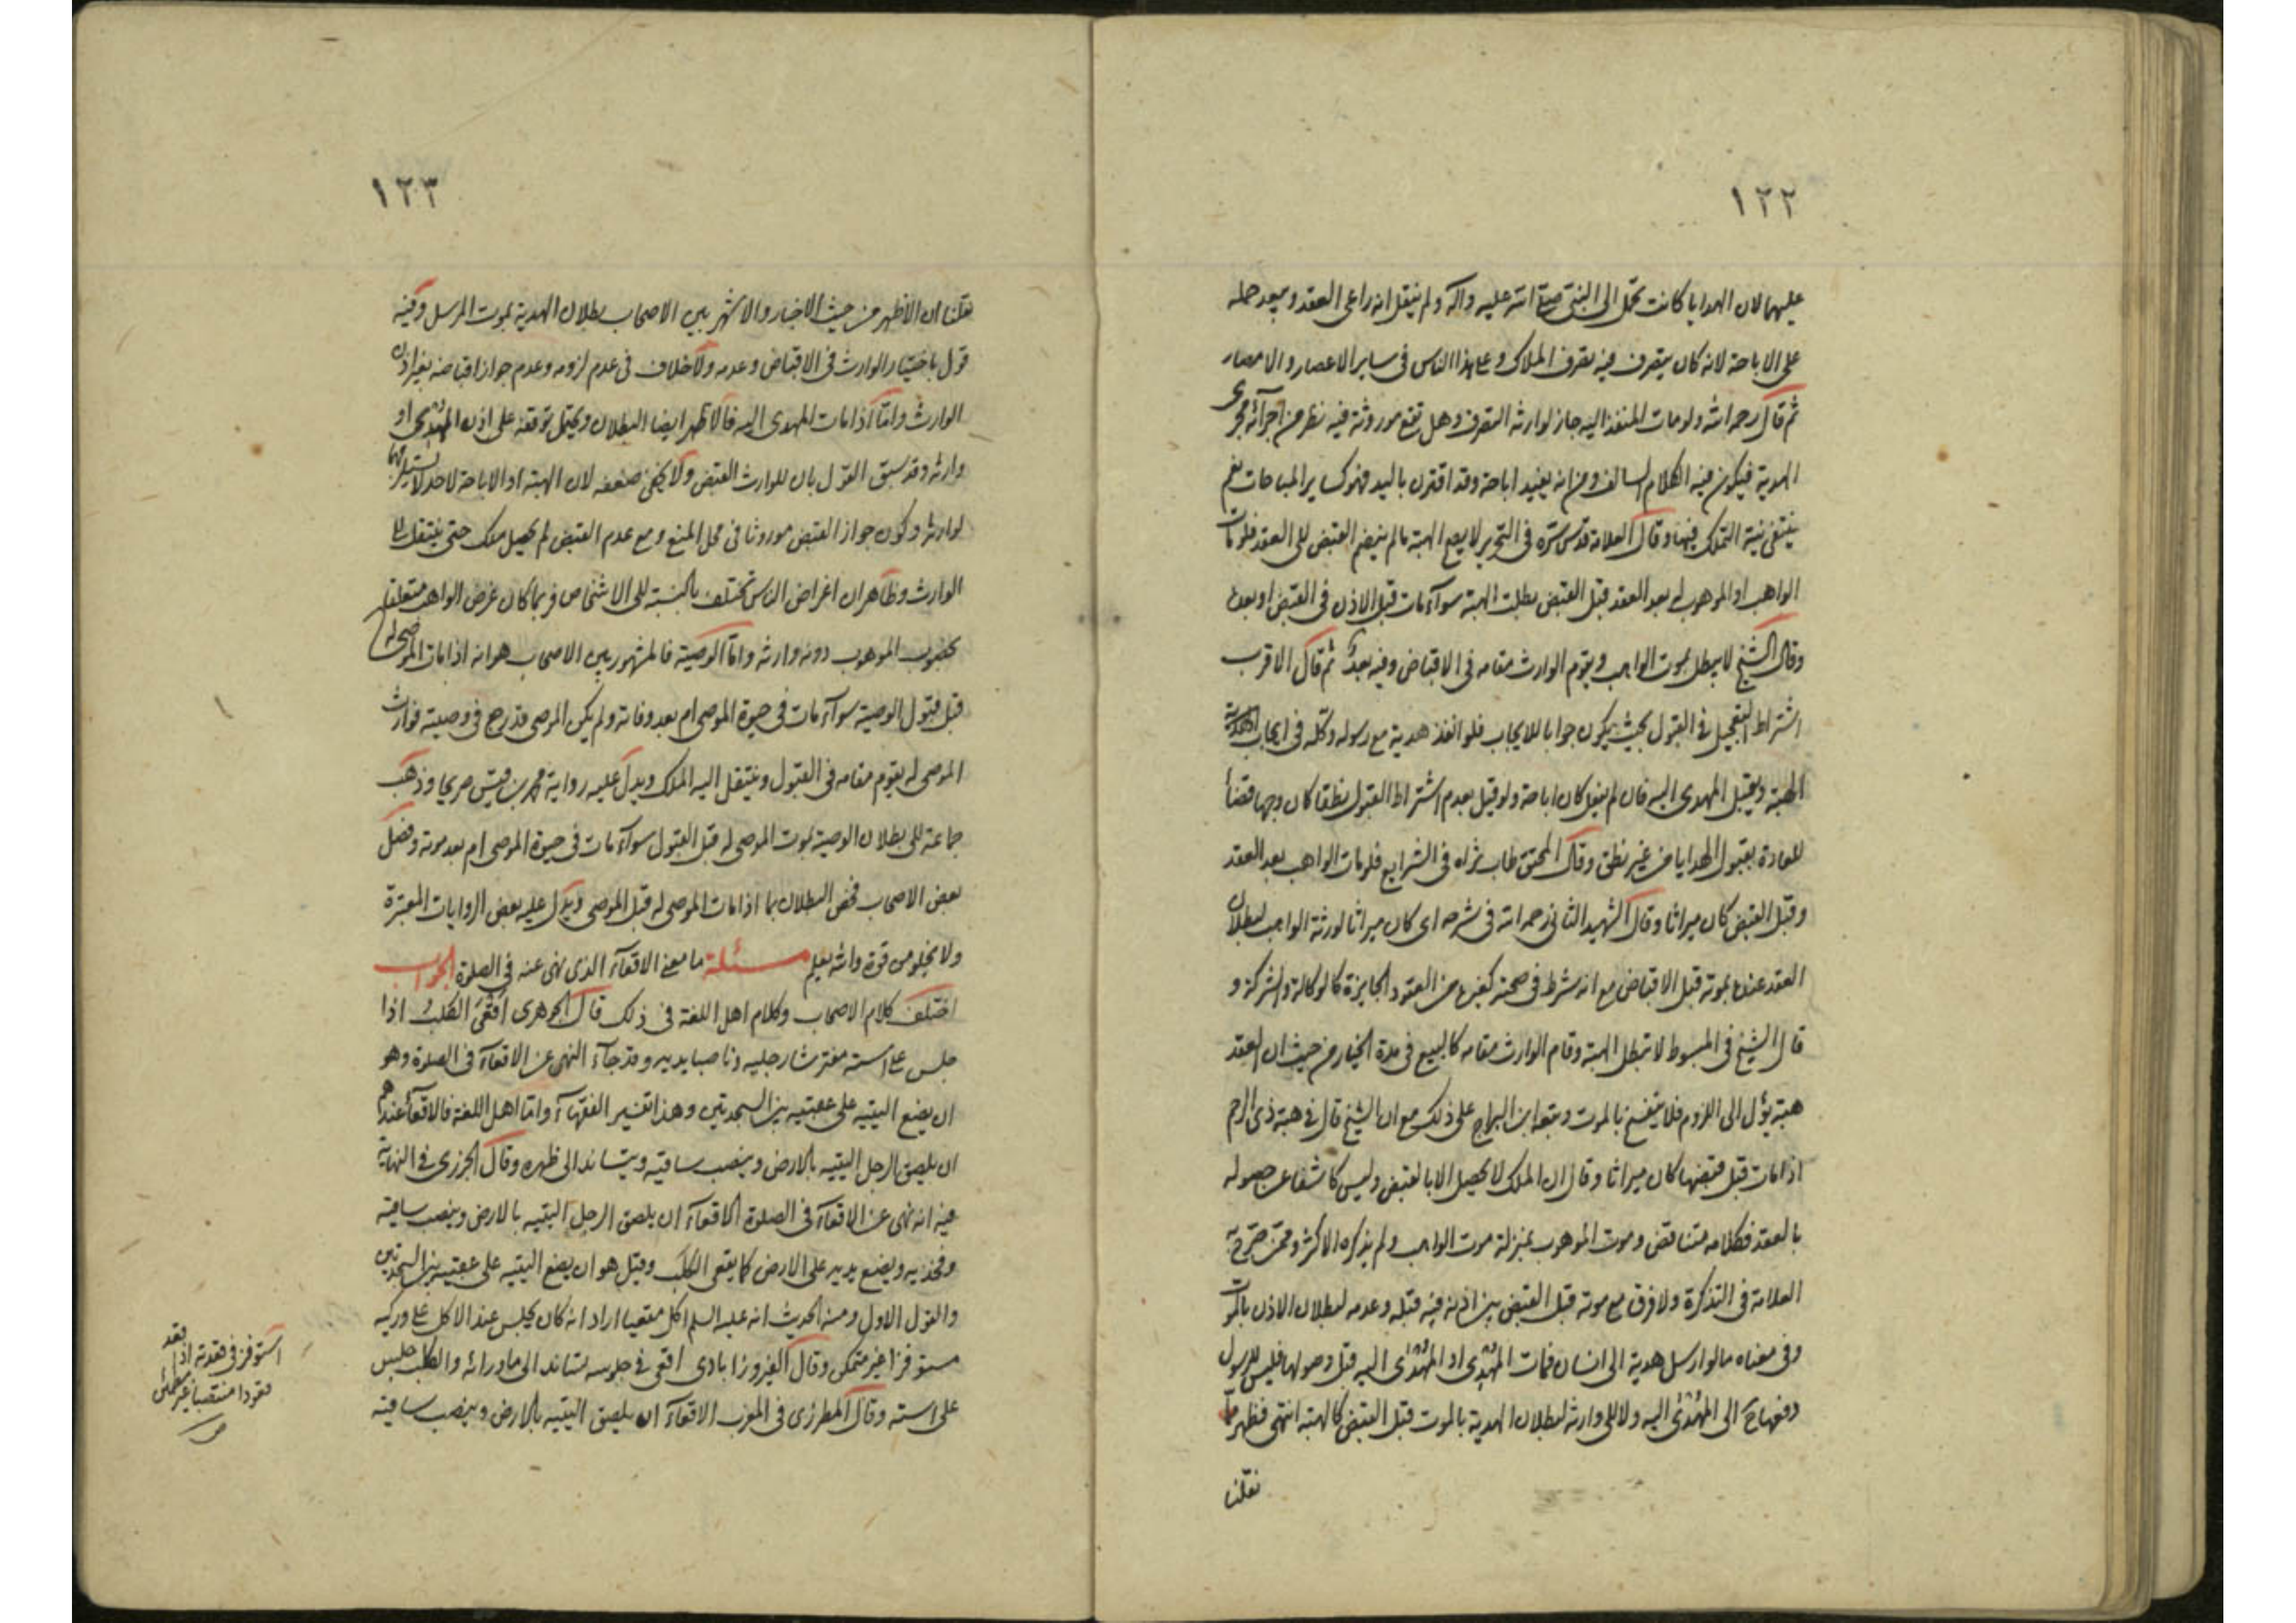 ١٢٢
عليهما لان الهدايا كانت تحمل الى النبي صلى الله عليه وآله ولم ينقل انه راعى العقد ويبعد حمله
على الاباحة لانه كان يتصرف فيه تصرف الملاك وعلى هذا الناس فى ساير الاعصار والامصار
ثم قال رحمه الله ولو مات المنفذ اليه جاز لوارثه التصرف وهل تقع موروثة فيه نظر من اجرائه مجرى
الهدية فيكون فيه الكلام السالف ومن انه يفيد اباحة وقد اقترن باليد فهو كساير المباحات نعم
ينتفى نية التملك فيها وقال العلامة قدس سره فى التحرير لا يصح الهبة ما لم ينضم القبض الى العقد فلو مات
الواهب او الموهوب له بعد العقد قبل القبض بطلت الهبة سوآء مات قبل الاذن فى القبض او بعده
وقال الشيخ لا يبطل بموت الواهب ويقوم الوارث مقامه فى الاقباض وفيه بعد ثم قال الاقرب
اشتراط التعجيل فى القبول بحيث يكون جوابا للايجاب فلو انفذ هدية مع رسوله وكله فى ايجاب
الهبة ويقبل المهدى اليه فان لم يفعل كان اباحة ولو قيل بعدم اشتراط القبول نطقا كان وجها قضأ
للعادة بقبول الهدايا من غير نطق وقال المحقق طاب ثراه فى الشرايع فلو مات الواهب بعد العقد
وقبل القبض كان ميراثا وقال الشهيد الثانى رحمه الله فى شرحه اى كان ميراثا لورثة الواهب لبطلان
العقد عنده بموته قبل الاقباض مع انه شرط فى صحته كغيره من العقود الجايزة كالوكالة والشركة و
قال الشيخ فى المبسوط لا تبطل الهبة وقام الوارث مقامه كالبيع فى مدة الخيار من حيث ان العقد
هبة يؤل الى اللزوم فلا ينفسخ بالموت وتبعه ابن البراج على ذلك مع ان الشيخ قال فى هبة ذى الرحم
اذا مات قبل قبضها كان ميراثا وقال ان الملك لا يحصل الا بالقبض وليس كاشفا عن حصوله
بالعقد فكلامه متناقض وموت الموهوب بمنزلة موت الواهب ولم يذكره الاكثر وممن صرح به
العلامة فى التذكرة ولا فرق مع موته قبل القبض بين اذنه فيه قبله وعدمه لبطلان الاذن بالموت
وفى معناه ما لو ارسل هدية الى انسان فمات المهدى او المهدى اليه قبل وصولها فليس للرسول
دفعها ح الى المهدى اليه ولا الى وارثه لبطلان الهدية بالموت قبل القبض كالهبة انتهى فظهر مما
نقلنا
١٢٣
نقلنا ان الاظهر من حيث الاخبار والاشهر بين الاصحاب بطلان الهدية بموت المرسل وفيه
قول باختيار الوارث فى الاقباض وعدمه ولا خلاف فى عدم لزومه وعدم جواز اقباضه بغير اذن
الوارث واما اذا مات المهدى اليه فالاظهر ايضا البطلان ويحتمل توقفه على اذن المهدى او
وارثه وقد سبق القول بان للوارث القبض ولا يخفى ضعفه لان الهبة او الاباحة لاحد لا يستلزمها
لوارثه وكون جواز القبض موروثا فى محل المنع ومع عدم القبض لم يحصل ملك حتى ينتقل الى
الوارث وظاهر ان اغراض الناس تختلف بالنسبة الى الاشخاص فربما كان غرض الواهب متعلقا
بخصوص الموهوب دون وارثه واما الوصية فالمشهور بين الاصحاب هو انه اذا مات الموصى له
قبل قبول الوصية سوآء مات فى حيوة الموصى ام بعد وفاته ولم يكن الموصى قد رجع فى وصيته فوارث
الموصى له يقوم مقامه فى القبول وينتقل اليه الملك ويدل عليه رواية محمد بن قيس صريحا وذهب
جماعة الى بطلان الوصية بموت الموصى له قبل القبول سوآء مات فى حيوة الموصى ام بعد موته وفصل
بعض الاصحاب فخص البطلان بما اذا مات الموصى له قبل الموصى ويدل عليه بعض الروايات المعتبرة
ولا يخلو من قوة والله يعلم مسئلة ما معنى الاقعآء الذى نهى عنه فى الصلوة الجواب
اختلف كلام الاصحاب وكلام اهل اللغة فى ذلك قال الجوهرى اقعى الكلب اذا
جلس على استه مفترشا رجليه وناصبا يديه وقد جآء النهى عن الاقعآء فى الصلوة وهو
ان يضع اليتيه على عقبيه بين السجدتين وهذا تفسير الفقهآء واما اهل اللغة فالاقعآء عندهم
ان يلصق الرجل اليتيه بالارض وينصب ساقيه ويتساند الى ظهره وقال الجزرى فى النهاية
فيه انه نهى عن الاقعآء فى الصلوة الاقعآء ان يلصق الرجل اليتيه بالارض وينصب ساقيه
وفخذيه ويضع يديه على الارض كما يقعى الكلب وقيل هو ان يضع اليتيه على عقبيه بين السجدتين
والقول الاول ومنه الحديث انه عليه السلم اكل مقعيا اراد انه كان يجلس عند الاكل على وركيه
مستوفزا غير متمكن وقال الفيروزابادى اقعى فى جلوسه تساند الى ما ورائه والكلب جلس
على استه وقال المطرزى فى المغرب الاقعآء ان يلصق اليتيه بالارض وينصب ساقيه
استوفز فى قعدته اذا قعد
قعودا منتصبا غير مطمئن